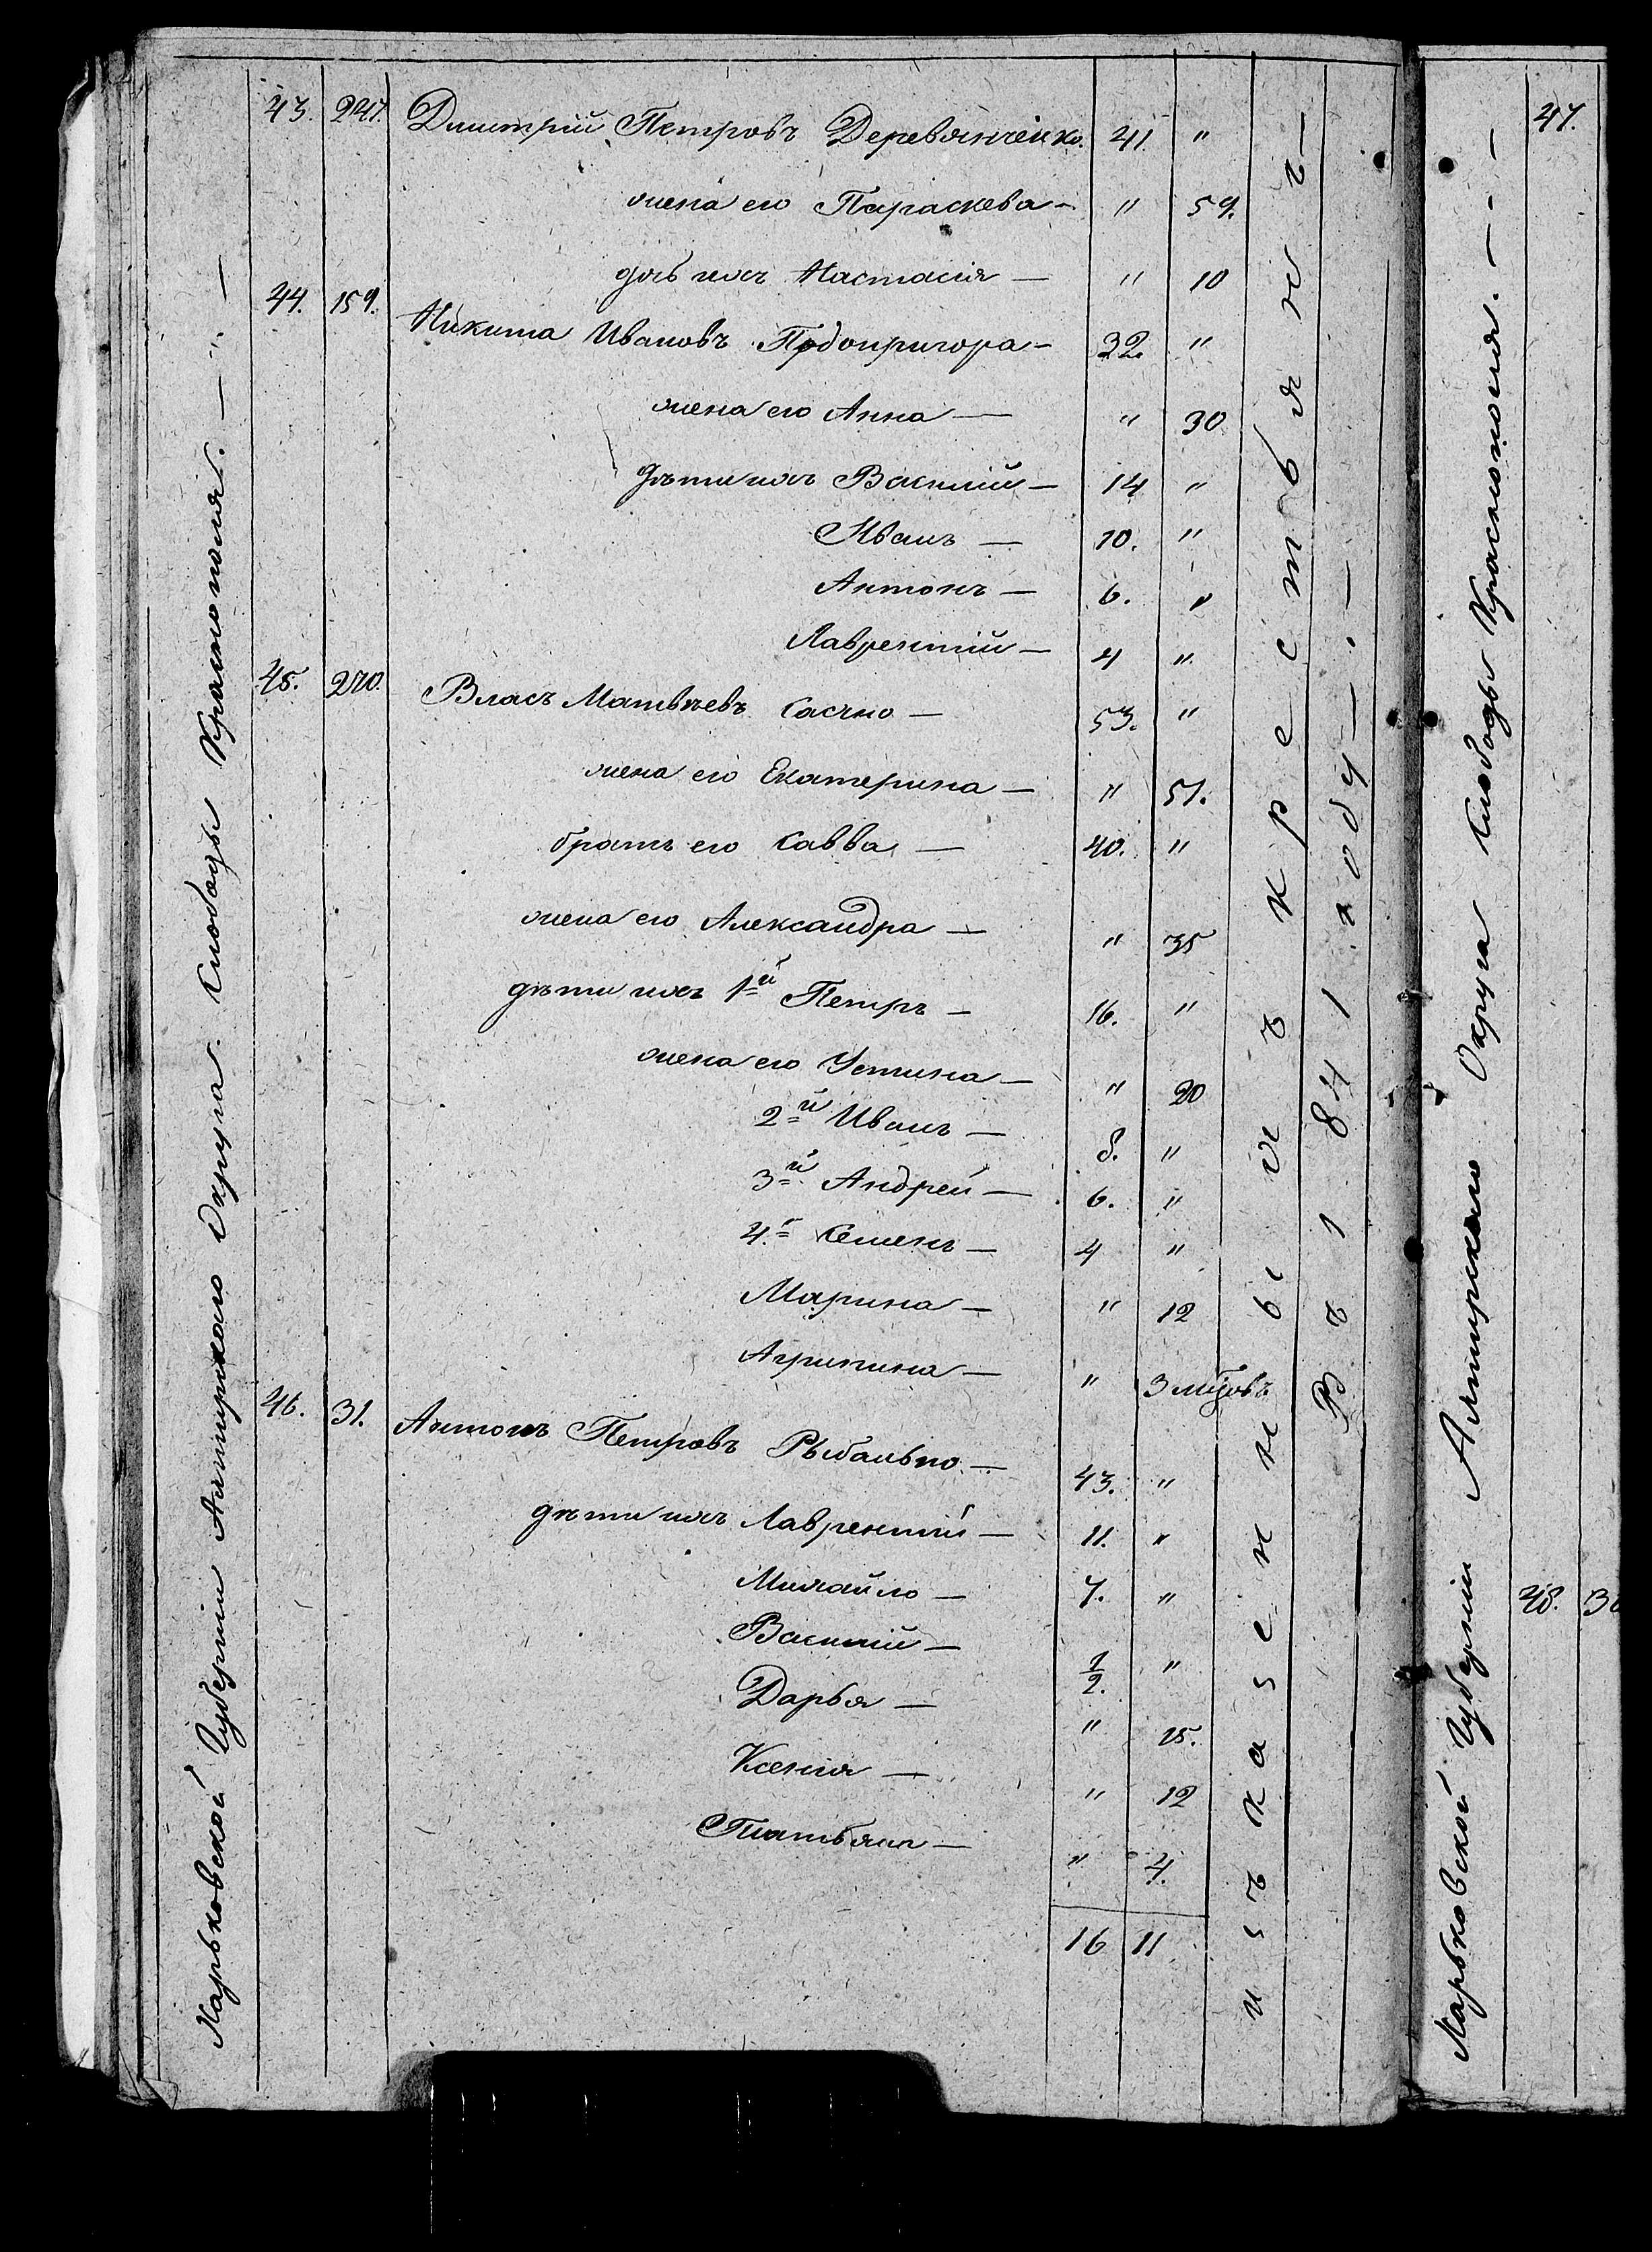 Харьковской Губерніи Ахтирскаго Округа. Слободы Краснополя. — „. —
43. 247. Дмитрій Петровъ Деревянченко. 41 "
жена его Параскева — " 59.
дочь ихъ Настасія — " 10
44. 159. Никита Ивановъ Подопригора — 32. "
жена его Анна — " 30
дѣти ихъ Василій — 14 "
Иванъ — 10. "
Антонъ — 6. "
Лаврентій — 4 "
45. 270. Власъ Матвѣевъ Сасько — 53. "
жена его Екатерина — " 51.
братъ его Савва — 40. "
жена его Александра — " 35
дѣти ихъ 1й Петръ — 16. "
жена его Устина — " 20
2й Иванъ — 8. "
3й Андрей — 6. "
4. Семенъ — 4 "
Марина — " 12
Агрипина — " 3 мцовъ
46. 31. Антонъ Петровъ Рыбалько — 43. "
дѣти ихъ Лаврентій — 11. "
Михайло — 7. "
Василій — 1/2. "
Дарья — " 15.
Ксенія — " 12
Татьяна — " 4.
16 11
изъ казенныхъ крестьянъ —
Въ 1841 году — . —
Харьковской Губерніи Ахтирскаго Округа Слободы Краснополя. — - - —
47.
48. 3